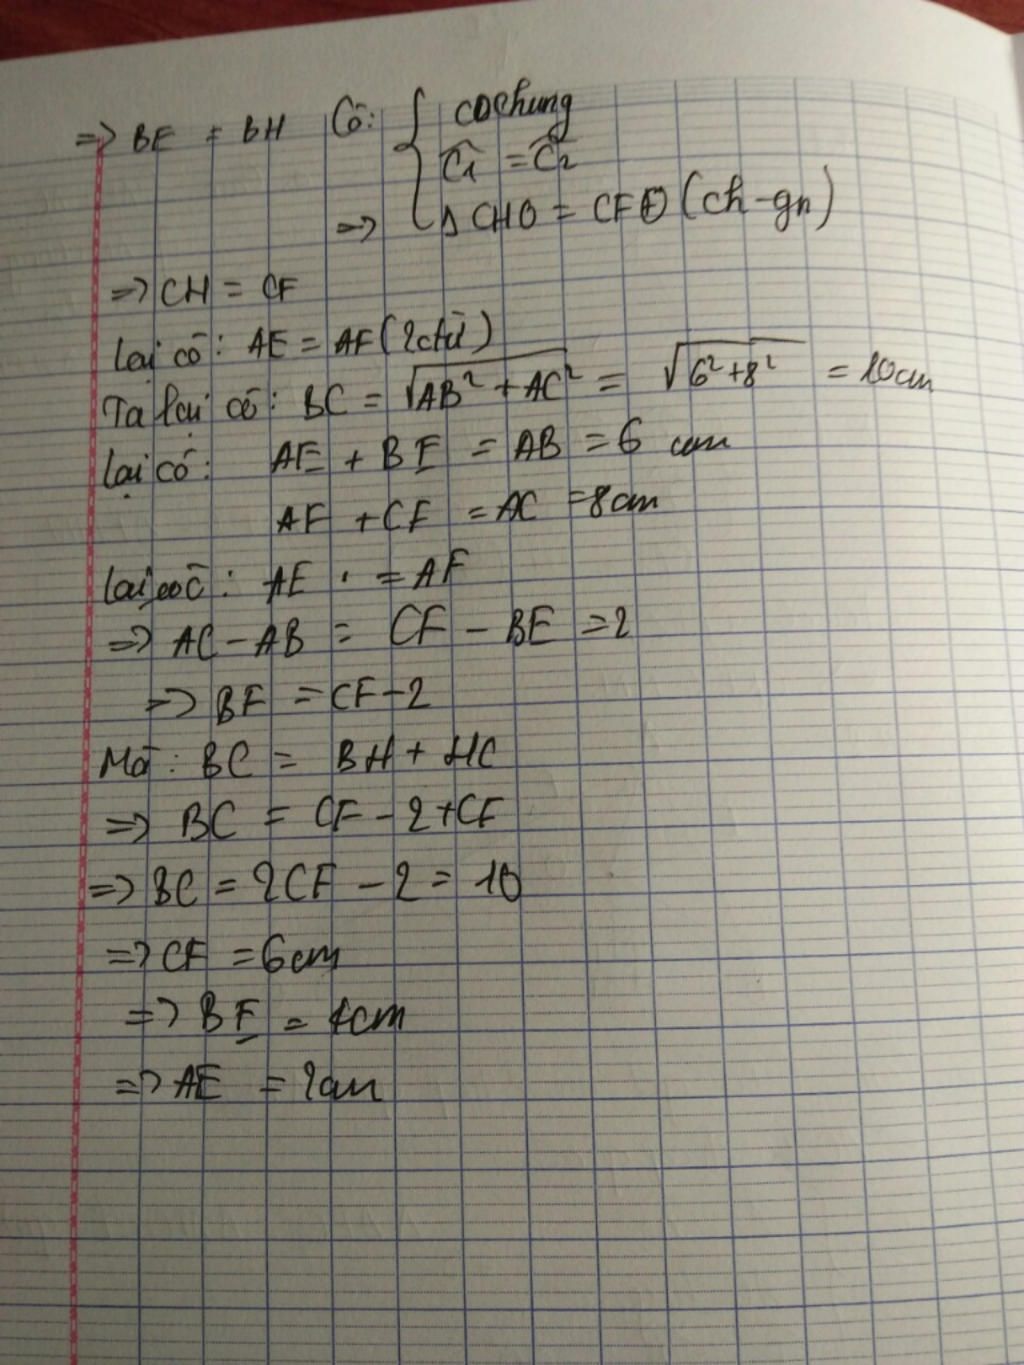 => BE = BH Có: { CO chung
Ĉ1 = Ĉ2
=> Δ CHO = CFO (ch-gn)
=> CH = CF
lại có: AE = AF (2ctứ)
Ta lại có: BC = √AB² + AC² = √6²+8² = 10cm
lại có: AE + BE = AB = 6 cm
AF + CF = AC = 8cm
lại có: AE = AF
=> AC - AB = CF - BE = 2
=> BE = CF - 2
Mà: BC = BH + HC
=> BC = CF - 2 + CF
=> BC = 2CF - 2 = 10
=> CF = 6cm
=> BE = 4cm
=> AE = 2cm